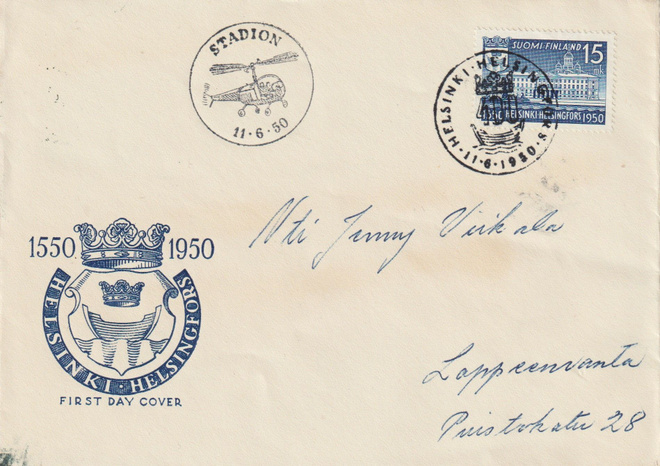 STADION
11·6·50
SUOMI-FINLAND 15
1550 HELSINKI-HELSINGFORS 1950
HELSINKI·HELSINGFORS
400
·11·6·1950·
Nti Jenny Viikala
1550 1950
HELSINKI·HELSINGFORS
FIRST DAY COVER
Lappeenranta
Puistokatu 28